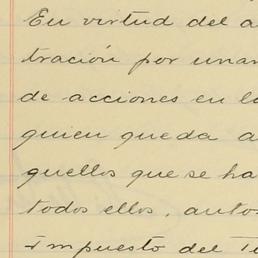 En virtud del a
tración por unan
de acciones en la
quien queda a
quellos que se ha
todos ellos, auto
Impuesto del Ti